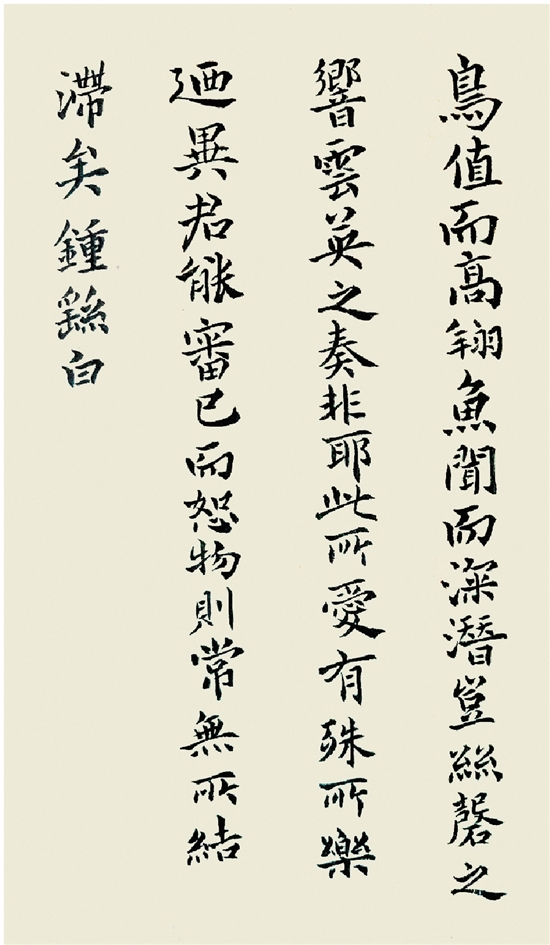 鳥值而高翔魚聞而深潛豈絲磬之
響雲英之奏非耶此所愛有殊所樂
迺異君能審己而恕物則常無所結
滯矣鍾繇白